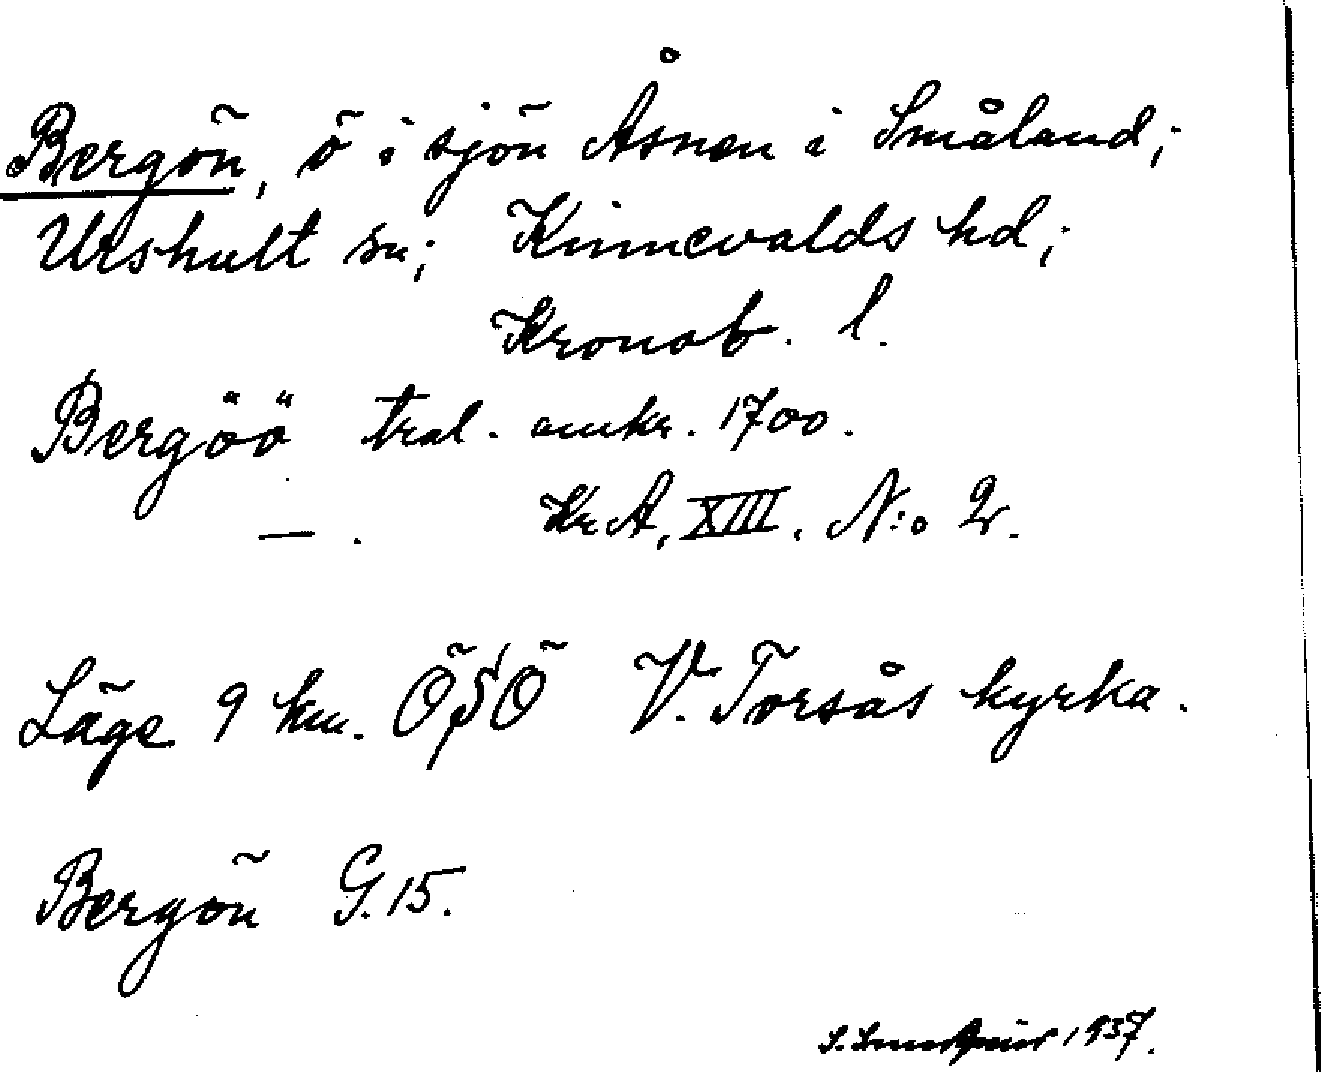 Bergön, ö i sjön Åsnen i Småland;
Urshult sn; Kinnevalds hd;
Kronob. l.
Bergöö tral. omkr. 1700.
— . Kr.A, XIII, N:o 2.
Läge 9 km. ÖSÖ V. Torsås kyrka.
Bergön G.15.
1937.